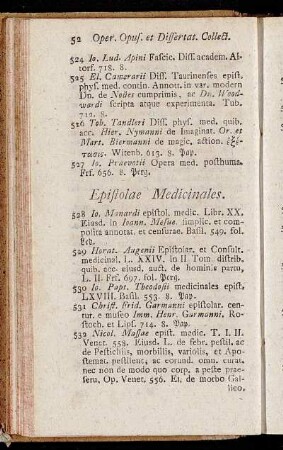 52 Oper. Opus. et Dissertat. Collect.
524 Io. Lud. Apini Fascic. Diff. academ. Al-
torf. 718. 8.
525 El. Camerarii Diff. Taurinenses epist.
phys. med. contin. Annot. in var. modern
Dn. de Nodes cumprimis, ac Dn. Wood-
wardi scripta atque experimenta. Tub.
712. 8.
526 Tob. Tandleri Diff. phys. med. quib.
acc. Hier. Nymanni de Imaginat. Or. et
Mart. Biermanni de magic. action. ἐξέ-
τασις. Witenb. 613. 8. Pap.
527 Io. Praevotii Opera med. posthuma.
Frf. 656. 8. Perg.
Epistolae Medicinales.
528 Io. Manardi epistol. medic. Libr. XX.
Eiusd. in Ioann. Mesue. simplic. et com-
posita annotat. et censurae. Basil. 549. fol.
Led.
529 Horat. Augenii Epistolar. et Consult.
medicinal. L. XXIV. in II. Tom. distrib.
quib. acc. eiusd. auct. de hominis partu,
L. II. Frf. 697. fol. Perg.
530 Io. Bapt. Theodosii medicinales epist.
LXVIII. Basil. 553. 8. Pap.
531 Christ. Frid. Garmanni epistolar. cen-
tur. e museo Imm. Henr. Garmanni, Ro-
stoch. et Lips. 714. 8. Pap.
532 Nicol. Massae epist. medic. T. I. II.
Venet. 558. Eiusd. L. de febr. pestil. ac
de Pestichiis, morbillis, variolis, et Apo-
stemat. pestilent; ac eorund. omn. curat.
nec non de modo quo corp. a peste prae-
seru, Op. Venet. 556. Et. de morbo Gal-
lico.